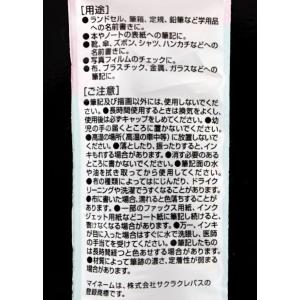 [用途]
●ランドセル、筆箱、定規、鉛筆など学用品
への名前書きに。
●本やノートの表紙への筆記に。
●靴、傘、ズボン、シャツ、ハンカチなどへの
名前書きに。
●写真フィルムのチェックに。
●布、プラスチック、金属、ガラスなどへの
筆記に。
[ご注意]
●筆記及び描画以外には、使用しないでくださ
い。●長時間使用するときは換気をよくし、
使用後は必ずキャップをしめてください。●幼
児の手の届くところに置かないでください。
●高温の場所(高温の車中等)に放置しない
でください。●落としたり、振ったりすると、イン
キもれする場合があります。●消す必要のある
ところに書かないでください。●筆記面の水
や油を拭き取ってから使用してください。
●布の種類によってはにじんだり、ドライク
リーニングや洗濯でうすくなることがあります。
●布に書いた場合、濡れると色落ちすることが
あります。●一部のファックス用紙、インク
ジェット用紙などコート紙に筆記し続けると、
書けなくなる場合があります。●万一、インキ
が目に入った場合はすぐに水で洗眼し、医師
の手当てを受けてください。●筆記したもの
は長時間のうちに色が変わることがあります。
●材質によって筆跡の濃さ、定着性が弱まる
場合があります。
マイネームは、株式会社サクラクレパスの
登録商標です。